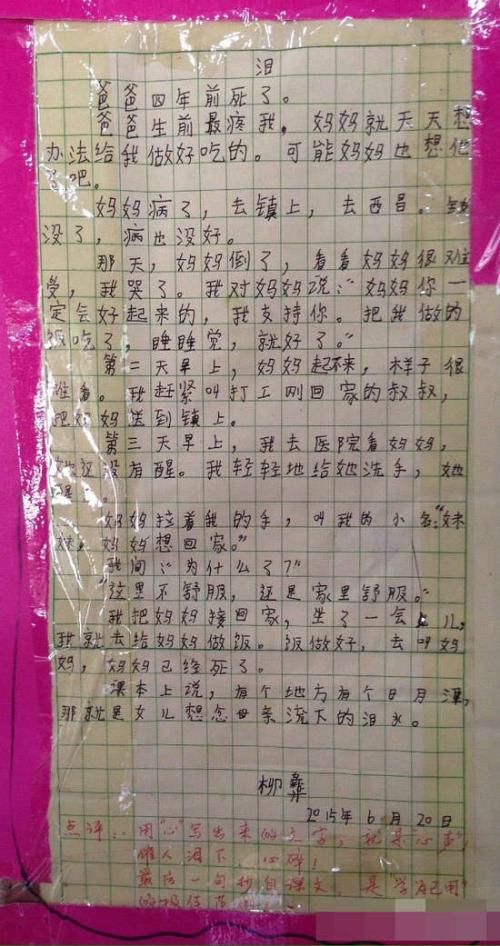 泪
爸爸四年前死了。
爸爸生前最疼我，妈妈就天天想
办法给我做好吃的。可能妈妈也想他
了吧。
妈妈病了，去镇上，去西昌，钱
没了，病也没好。
那天，妈妈倒了，看看妈妈很难
受，我哭了。我对妈妈说：“妈妈你一
定会好起来的，我支持你。把我做的
饭吃了，睡睡觉，就好了。”
第二天早上，妈妈起不来，样子很
难看。我赶紧叫打工刚回家的叔叔，
把妈妈送到镇上。
第三天早上，我去医院看妈妈，
她还没有醒。我轻轻地给她洗手，她
醒了。
妈妈拉着我的手，叫我的小名：“妹
妹，妈妈想回家。”
我问：“为什么了？”
“这里不舒服，还是家里舒服。”
我把妈妈接回家，坐了一会儿，
我就去给妈妈做饭。饭做好，去叫妈
妈，妈妈已经死了。
课本上说，有个地方有个日月潭，
那就是女儿想念母亲流下的泪水。
柳彝
2015年6月20日
点评：用“心”写出来的文字，就是“心声”，
催人泪下，心碎！
最后一句抄自课文，是“学为己用”
的极佳范例！